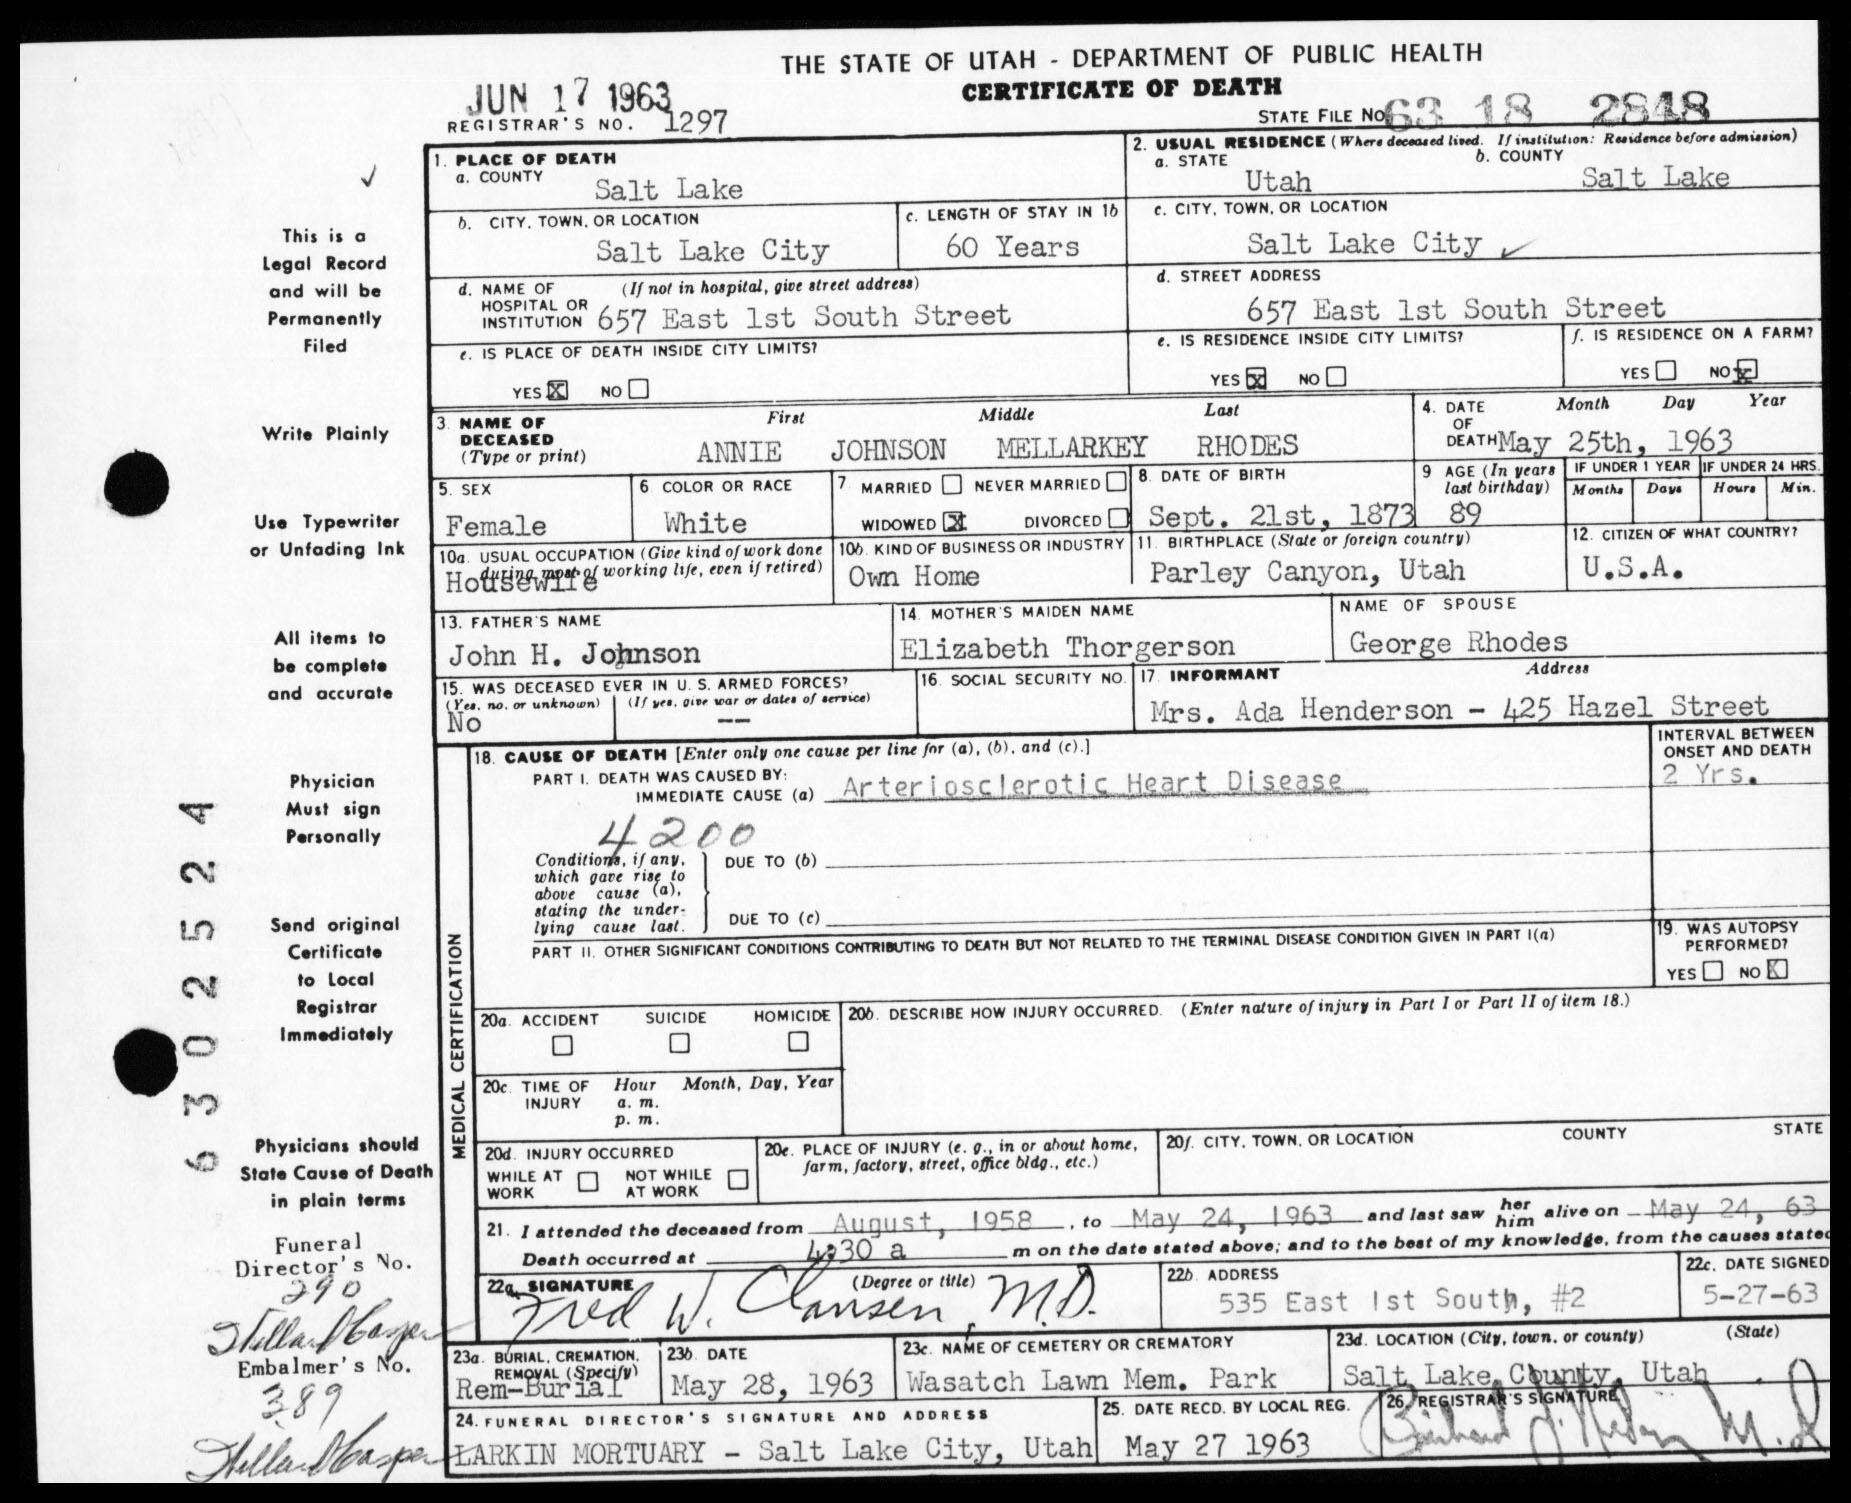 THE STATE OF UTAH - DEPARTMENT OF PUBLIC HEALTH
CERTIFICATE OF DEATH
JUN 17 1963
REGISTRAR'S NO. 1297
STATE FILE NO. 63 18 2848
This is a
Legal Record
and will be
Permanently
Filed
Write Plainly
Use Typewriter
or Unfading Ink
All items to
be complete
and accurate
Physician
Must sign
Personally
Send original
Certificate
to Local
Registrar
Immediately
Physicians should
State Cause of Death
in plain terms
Funeral
Director's No.
290
Embalmer's No.
389
63025524
1. PLACE OF DEATH
a. COUNTY
Salt Lake
2. USUAL RESIDENCE (Where deceased lived. If institution: Residence before admission)
a. STATE
Utah
b. COUNTY
Salt Lake
b. CITY, TOWN, OR LOCATION
Salt Lake City
c. LENGTH OF STAY IN 1b
60 Years
c. CITY, TOWN, OR LOCATION
Salt Lake City
d. NAME OF (If not in hospital, give street address)
HOSPITAL OR
INSTITUTION 657 East 1st South Street
d. STREET ADDRESS
657 East 1st South Street
e. IS PLACE OF DEATH INSIDE CITY LIMITS?
YES X NO
e. IS RESIDENCE INSIDE CITY LIMITS?
YES X NO
f. IS RESIDENCE ON A FARM?
YES NO X
3. NAME OF
DECEASED
(Type or print)
First Middle Last
ANNIE JOHNSON MELLARKEY RHODES
4. DATE
OF
DEATH
Month Day Year
May 25th, 1963
5. SEX
Female
6 COLOR OR RACE
White
7 MARRIED NEVER MARRIED
WIDOWED X DIVORCED
8. DATE OF BIRTH
Sept. 21st, 1873
9 AGE (In years
last birthday)
89
IF UNDER 1 YEAR
Months Days
IF UNDER 24 HRS.
Hours Min.
10a. USUAL OCCUPATION (Give kind of work done
during most of working life, even if retired)
Housewife
10b. KIND OF BUSINESS OR INDUSTRY
Own Home
11. BIRTHPLACE (State or foreign country)
Parley Canyon, Utah
12. CITIZEN OF WHAT COUNTRY?
U.S.A.
13. FATHER'S NAME
John H. Johnson
14. MOTHER'S MAIDEN NAME
Elizabeth Thorgerson
NAME OF SPOUSE
George Rhodes
15. WAS DECEASED EVER IN U. S. ARMED FORCES?
(Yes, no, or unknown) (If yes, give war or dates of service)
No --
16. SOCIAL SECURITY NO.
17. INFORMANT Address
Mrs. Ada Henderson - 425 Hazel Street
MEDICAL CERTIFICATION
18. CAUSE OF DEATH [Enter only one cause per line for (a), (b), and (c).]
PART I. DEATH WAS CAUSED BY:
IMMEDIATE CAUSE (a) Arteriosclerotic Heart Disease
INTERVAL BETWEEN
ONSET AND DEATH
2 Yrs.
4200
Conditions, if any,
which gave rise to
above cause (a),
stating the under-
lying cause last.
DUE TO (b)
DUE TO (c)
PART II. OTHER SIGNIFICANT CONDITIONS CONTRIBUTING TO DEATH BUT NOT RELATED TO THE TERMINAL DISEASE CONDITION GIVEN IN PART I(a)
19. WAS AUTOPSY
PERFORMED?
YES NO X
20a. ACCIDENT SUICIDE HOMICIDE
20b. DESCRIBE HOW INJURY OCCURRED. (Enter nature of injury in Part I or Part II of item 18.)
20c. TIME OF
INJURY
Hour Month, Day, Year
a. m.
p. m.
20d. INJURY OCCURRED
WHILE AT
WORK
NOT WHILE
AT WORK
20e. PLACE OF INJURY (e. g., in or about home,
farm, factory, street, office bldg., etc.)
20f. CITY, TOWN, OR LOCATION COUNTY STATE
21. I attended the deceased from August, 1958, to May 24, 1963 and last saw her him alive on May 24, 63
Death occurred at 4:30 a m on the date stated above; and to the best of my knowledge, from the causes stated
22a. SIGNATURE (Degree or title)
Fred W. Clausen, M.D.
22b. ADDRESS
535 East 1st South, #2
22c. DATE SIGNED
5-27-63
23a. BURIAL, CREMATION,
REMOVAL (Specify)
Rem-Burial
23b. DATE
May 28, 1963
23c. NAME OF CEMETERY OR CREMATORY
Wasatch Lawn Mem. Park
23d. LOCATION (City, town, or county) (State)
Salt Lake County, Utah
24. FUNERAL DIRECTOR'S SIGNATURE AND ADDRESS
LARKIN MORTUARY - Salt Lake City, Utah
25. DATE RECD. BY LOCAL REG.
May 27 1963
26. REGISTRAR'S SIGNATURE
M.D.